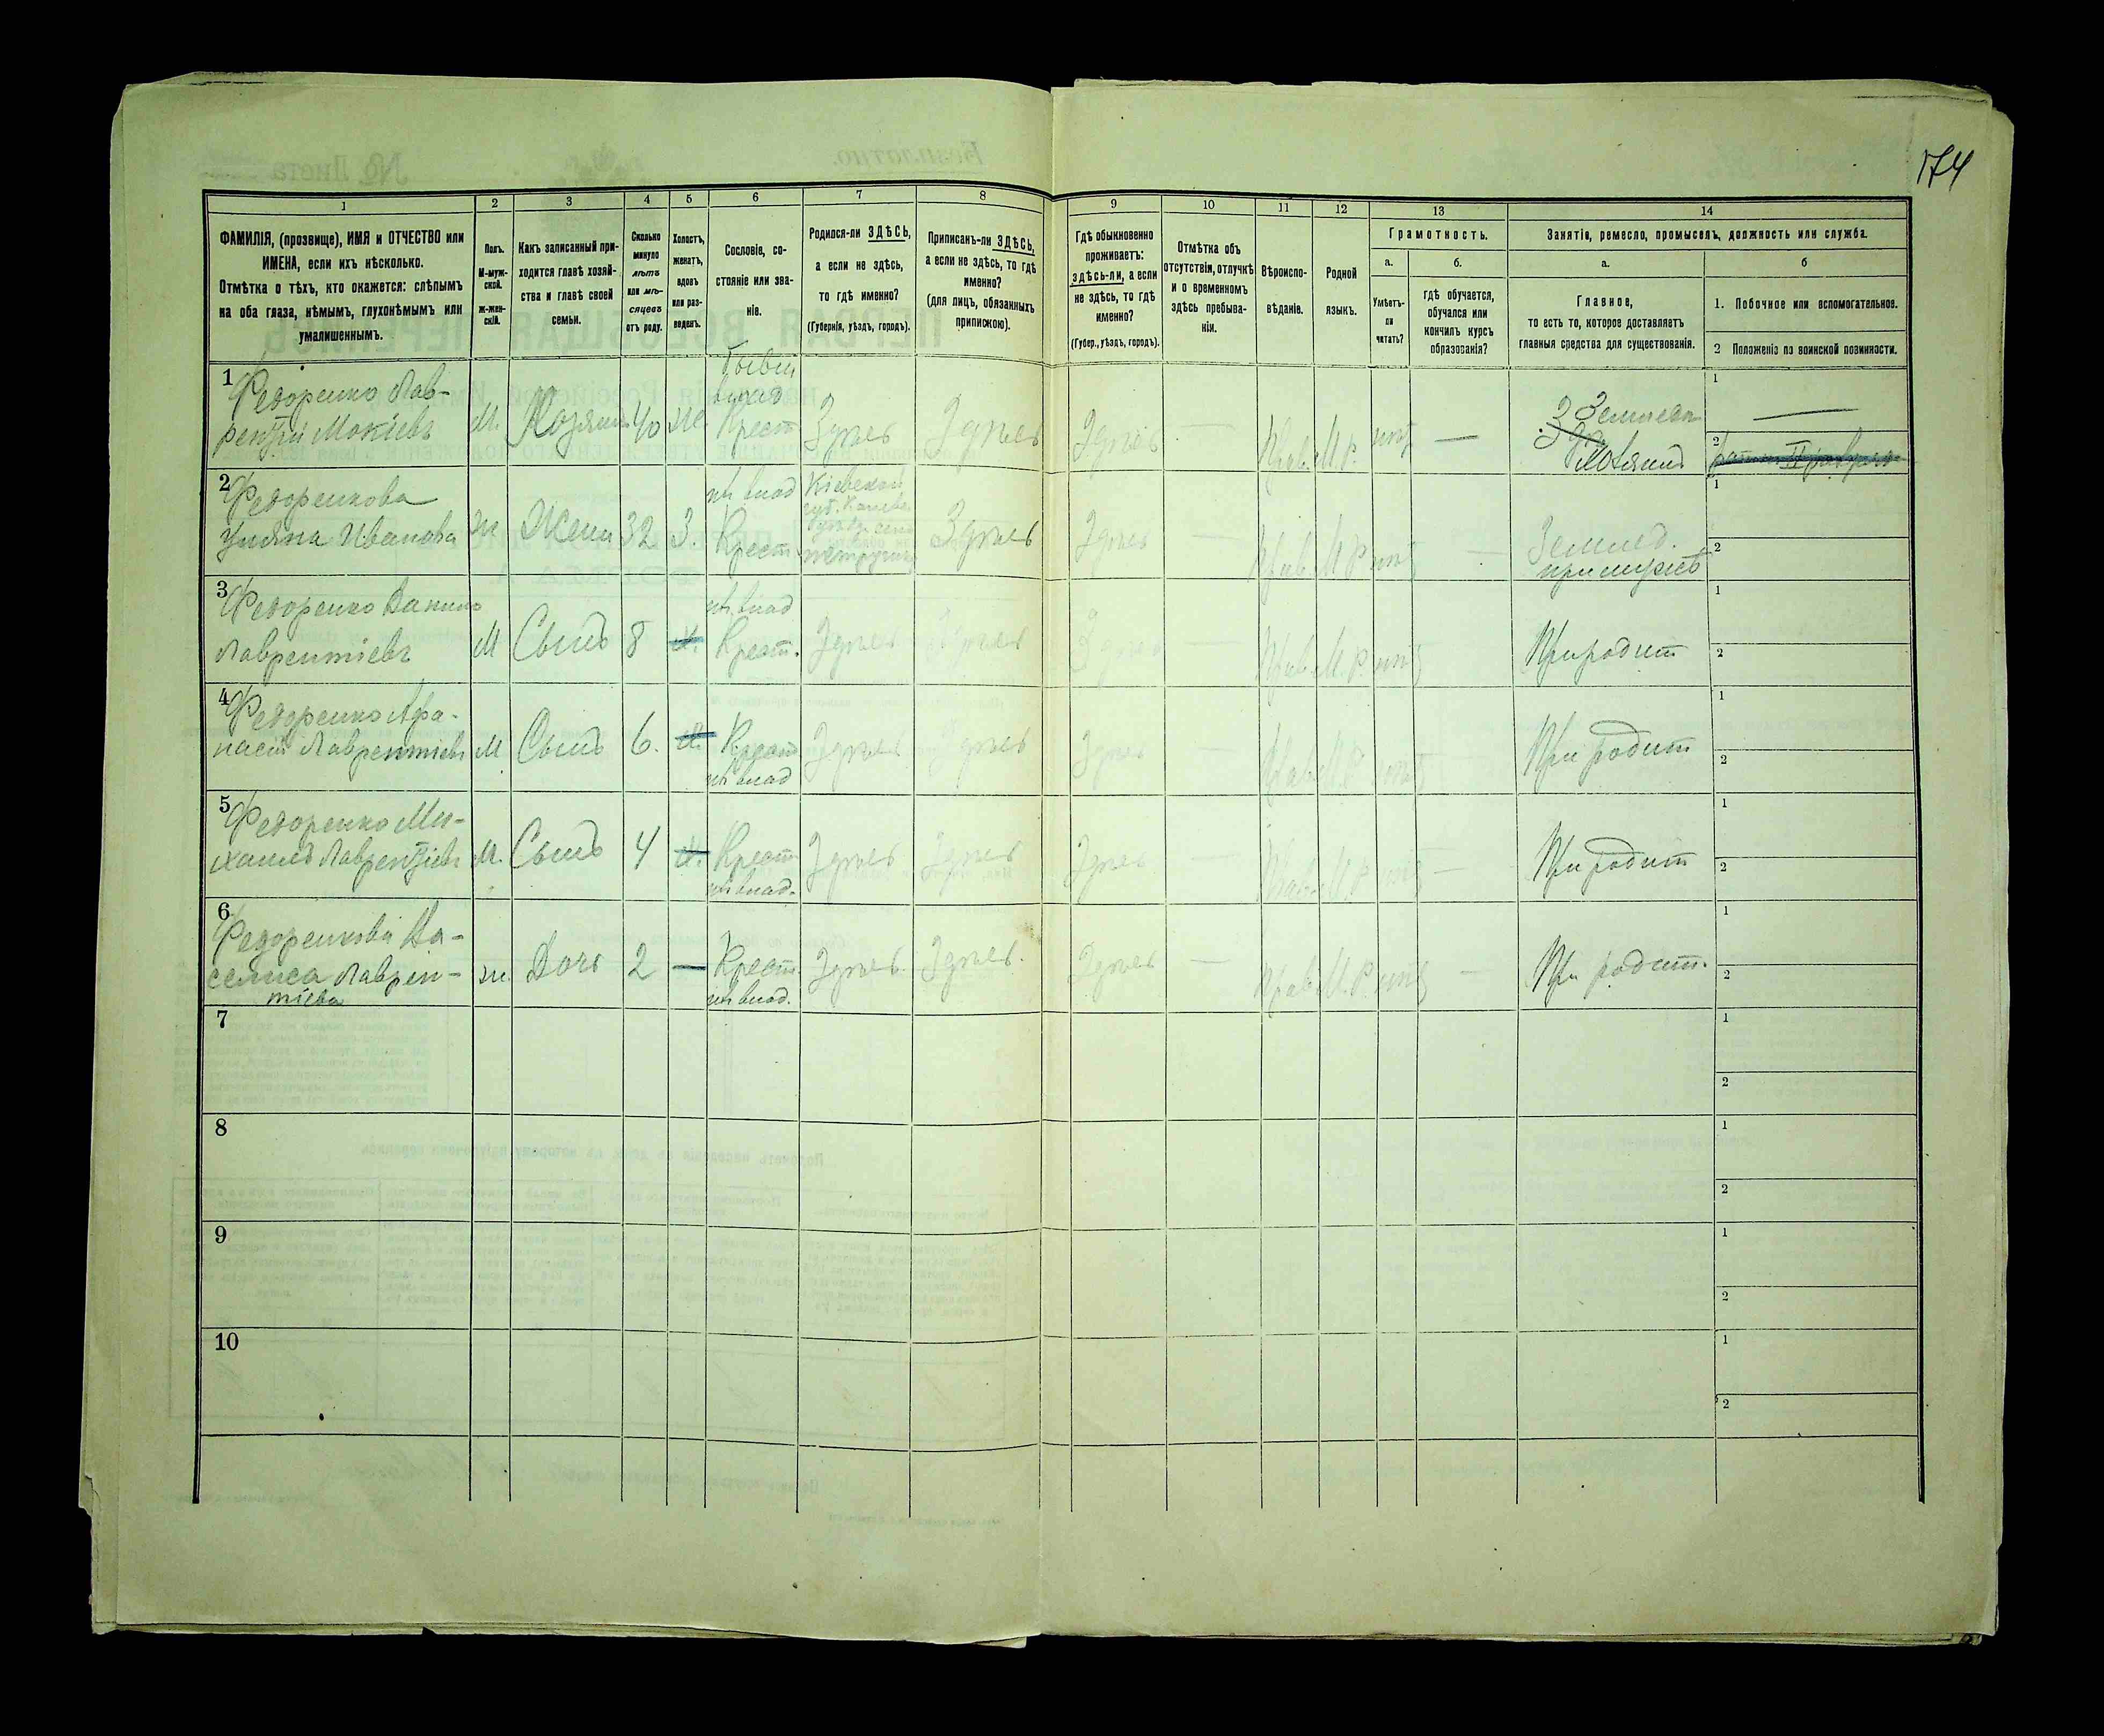 174
1
2
3
4
5
6
7
8
9
10
11
12
13
14
ФАМИЛІЯ, (прозвище), ИМЯ и ОТЧЕСТВО или
ИМЕНА, если ихъ нѣсколько.
Отмѣтка о тѣхъ, кто окажется: слѣпымъ
на оба глаза, нѣмымъ, глухонѣмымъ или
умалишеннымъ.
Полъ.
М-муж-
ской.
ж-жен-
скій.
Какъ записанный при-
ходится главѣ хозяй-
ства и главѣ своей
семьи.
Сколько
минуло
лѣтъ
или мѣ-
сяцевъ
отъ роду.
Холостъ,
женатъ,
вдовъ
или раз-
веденъ.
Сословіе, со-
стояніе или зва-
ніе.
Родился-ли ЗДѢСЬ,
а если не здѣсь,
то гдѣ именно?
(Губернія, уѣздъ, городъ).
Приписанъ-ли ЗДѢСЬ,
а если не здѣсь, то гдѣ
именно?
(для лицъ, обязанныхъ
припискою).
Гдѣ обыкновенно
проживаетъ:
здѣсь-ли, а если
не здѣсь, то гдѣ
именно?
(Губер., уѣздъ, городъ).
Отмѣтка объ
отсутствіи, отлучкѣ
и о временномъ
здѣсь пребыва-
ніи.
Вѣроиспо-
вѣданіе.
Родной
языкъ.
Грамотность.
а.
Умѣетъ-
ли
читать?
б.
гдѣ обучается,
обучался или
кончилъ курсъ
образованія?
Занятіе, ремесло, промыселъ, должность или служба.
а.
Главное,
то есть то, которое доставляетъ
главныя средства для существованія.
б
1. Побочное или вспомогательное.
2 Положеніе по воинской повинности.
1
Федоренко Лав-
рентій Мокіевъ
М.
Хозяинъ
40
Ж.
бывш
влад
Крест
Здѣсь
Здѣсь
Здѣсь
—
Прав
М.Р.
нѣтъ
—
1
—
2
2
Федоренкова
Уляна Иванова
Ж
Жена
32
З.
влад
Крест
Кіевской
губ. Канев.
уѣзд. село
Здѣсь
Здѣсь
—
Прав
М Р
нѣтъ
—
Землед.
при мужѣ
1
2
3
Федоренко Данило
Лаврентіевъ
М
Сынъ
8
влад
Крест.
Здѣсь
Здѣсь
Здѣсь
—
Прав
М.Р.
нѣтъ
При родит
1
2
4
Федоренко Афа-
насій Лаврентіевъ
М
Сынъ
6.
Крест
влад
Здѣсь
Здѣсь
Здѣсь
—
Прав
М.Р.
нѣтъ
—
При родит
1
2
5
Федоренко Ми-
хаилъ Лаврентіевъ
М.
Сынъ
4
Крест
влад.
Здѣсь
Здѣсь
Здѣсь
—
Прав
М Р
нѣтъ
—
При родит
1
2
6
Федоренкова Ва-
селиса Лаврен-
тіева
ж.
Дочь
2
—
Крест.
влад.
Здѣсь
Здѣсь.
Здѣсь
—
Прав
М.Р.
нѣтъ
—
При родит.
1
2
7
1
2
8
1
2
9
1
2
10
1
2